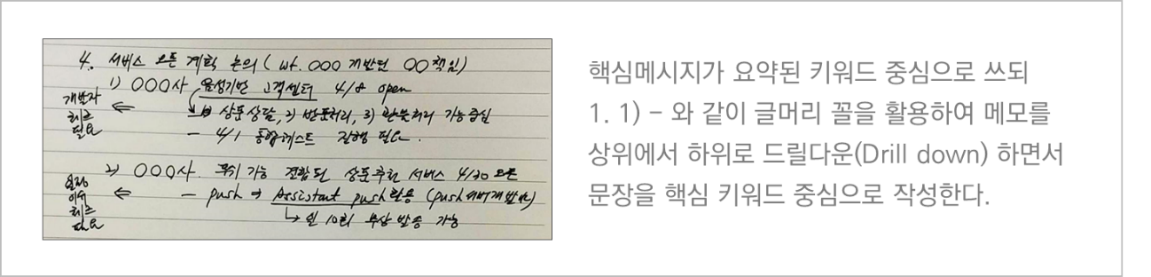 4. 서비스 오픈 계획 논의 (wt. OOO 개발팀 OO책임)
1) OOO사 음성기반 고객센터 4/8 open
개발자 체크 필요 ⇐
↳ 1) 상품상담, 2) 반품처리, 3) 환불처리 가능 중심
- 4/1 통합테스트 진행 필요.
2) OOO사. 푸쉬 가능 결합된 상품추천 서비스 4/30 오픈
⇐ - push → Assistant push 활용 (push 서버 개발)
체크 필요
↳ 월 10회 무상 발송 가능
핵심메시지가 요약된 키워드 중심으로 쓰되
1. 1) – 와 같이 글머리 꼴을 활용하여 메모를
상위에서 하위로 드릴다운(Drill down) 하면서
문장을 핵심 키워드 중심으로 작성한다.